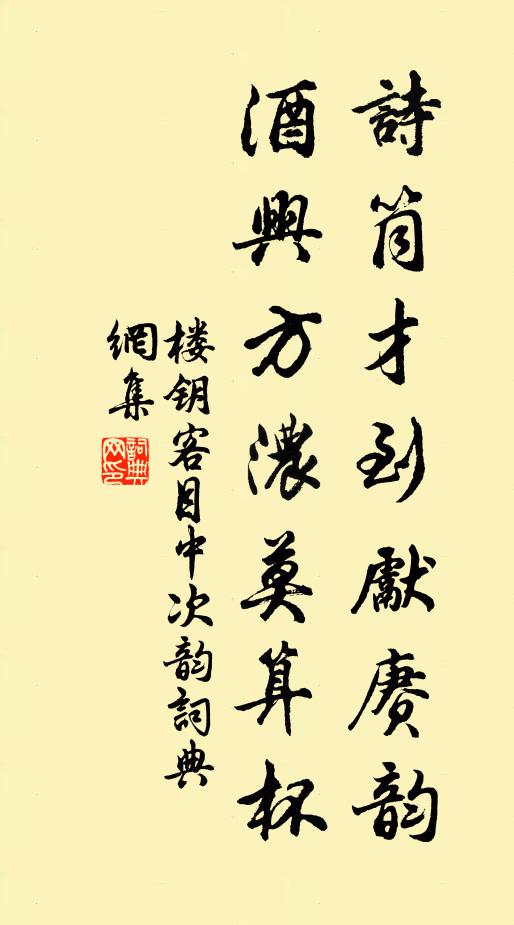 詩筒才到獻賡韵
酒興方濃莫算杯
楼钥客目中次韵詞典
網集
詞典
网印